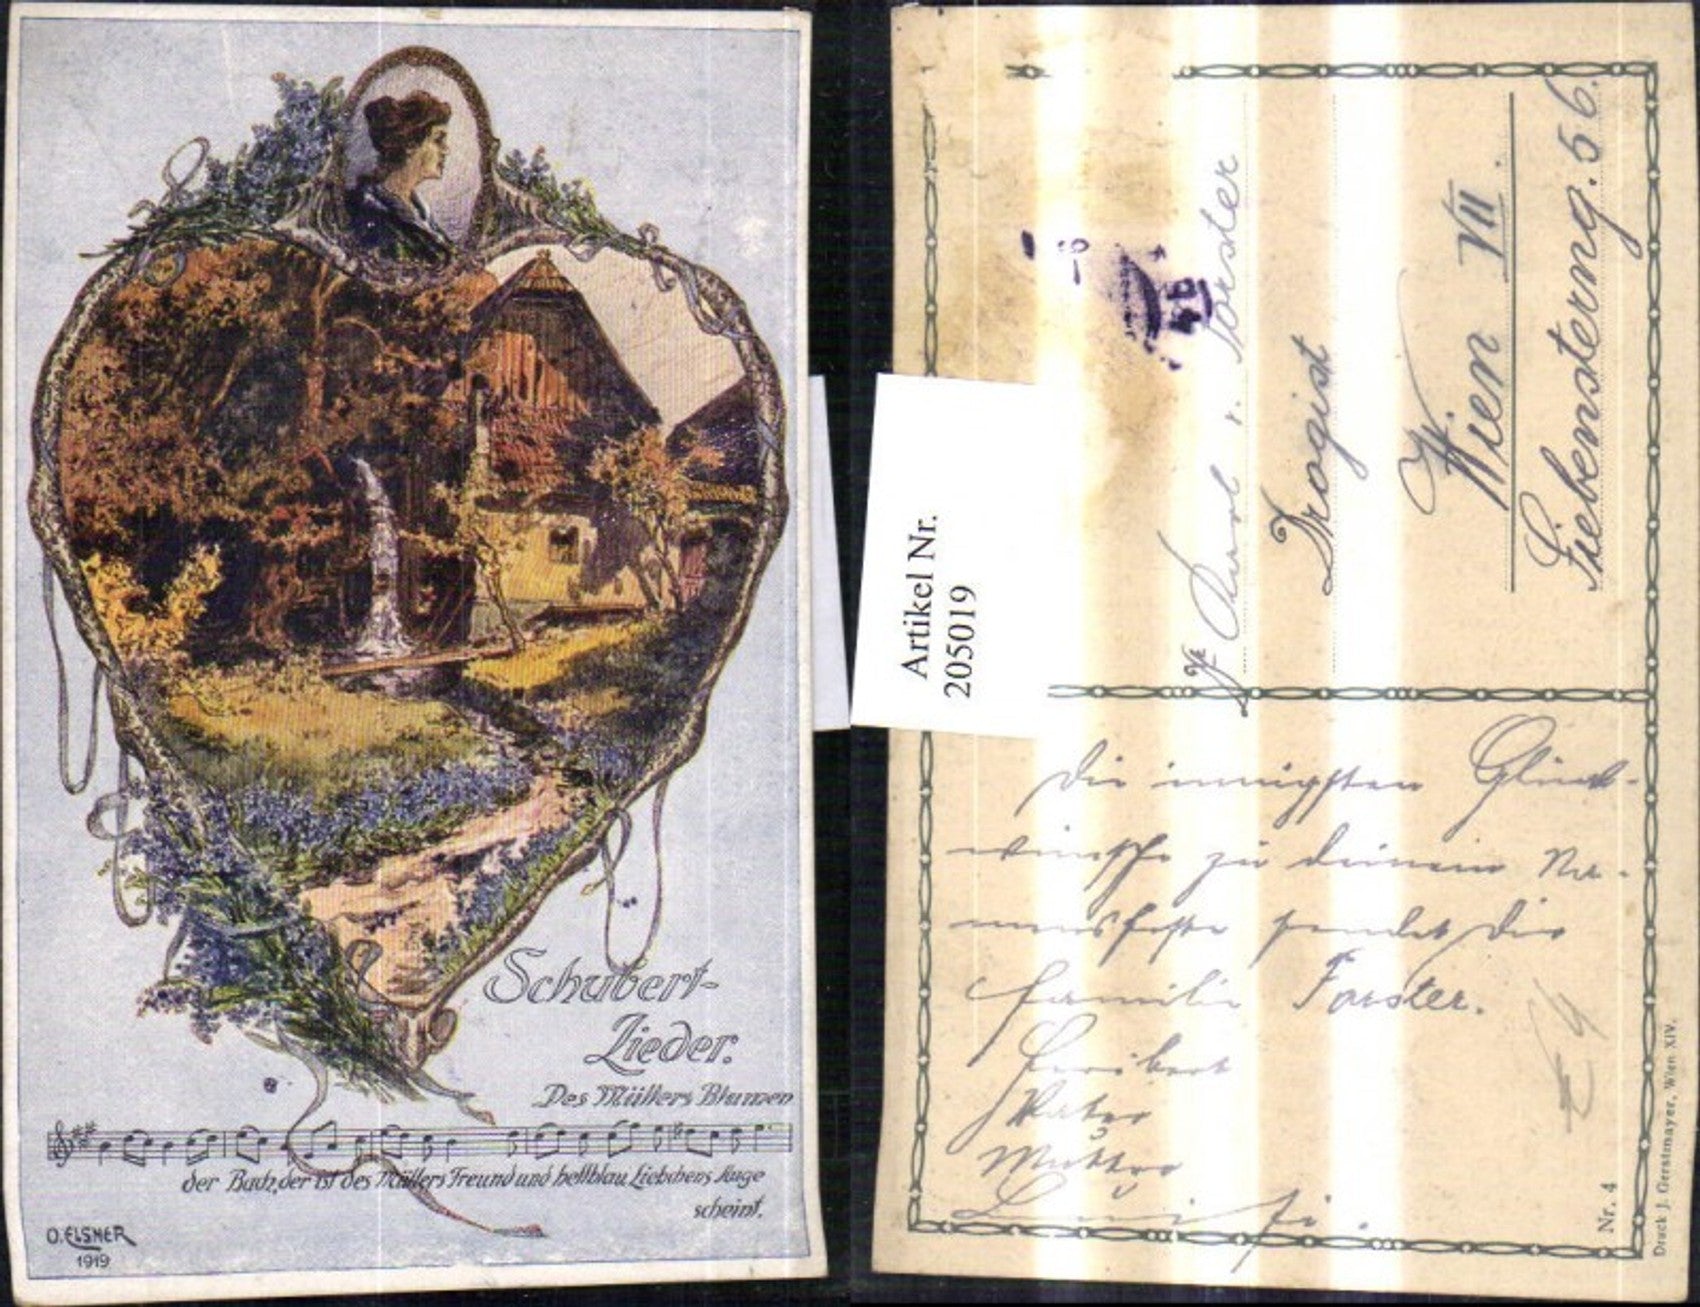 Schubert-
Lieder.
Des Müllers Blumen
der Bach, der ist des Müllers Freund und hellblau Liebchens Auge
scheint.
O. ELSNER
1919
Artikel Nr.
205019
Forster
Drogist
Wien VII.
Siebensterng. 56.
Die innigsten Glück-
wünsche zu deinem Na-
mensfeste sendet die
Familie Forster.
Heribert
Vater
Mutter
Nr. 4
Druck J. Gerstmayer, Wien XIV.